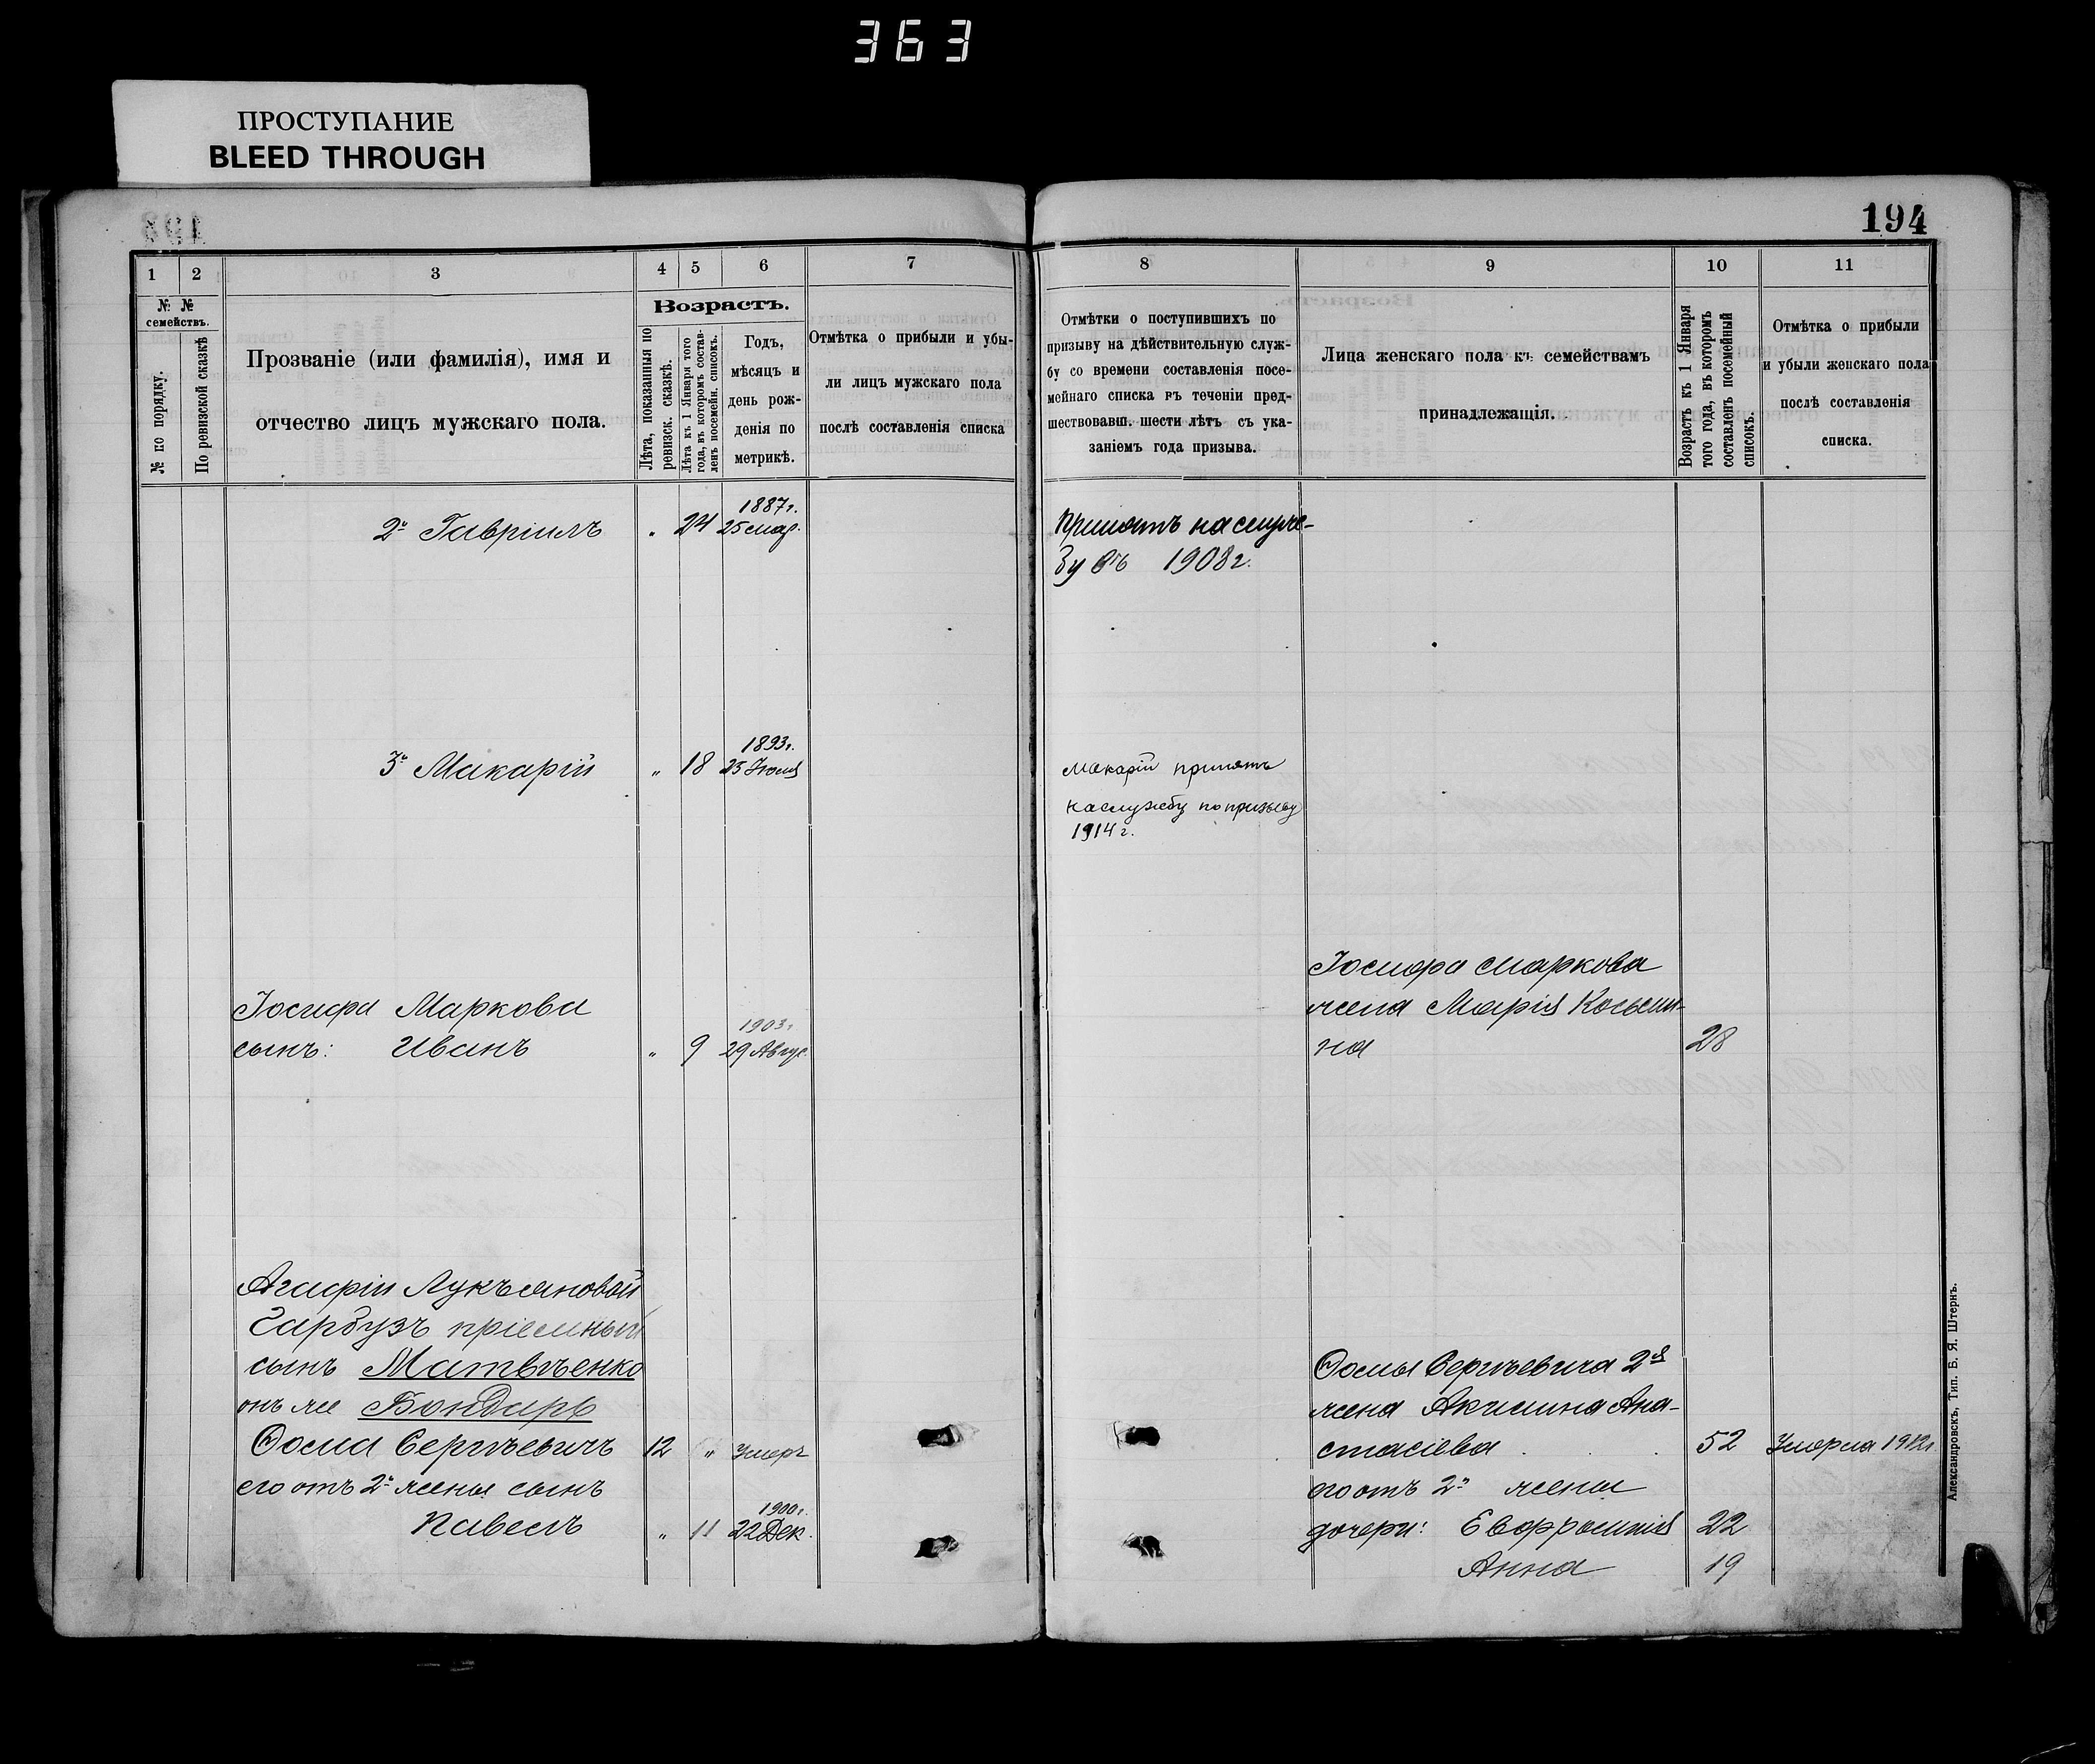 363
ПРОСТУПАНИЕ
BLEED THROUGH
194
1 2 3 4 5 6 7
№ №
семействъ.
№ по порядку.
По ревизской сказкѣ
Прозваніе (или фамилія), имя и
отчество лицъ мужскаго пола.
Возрастъ.
Лѣта, показанныя по
ревизск. сказкѣ.
Лѣта къ 1 Января того
года, въ которомъ состав-
ленъ посемейн. списокъ.
Годъ,
мѣсяцъ и
день рож-
денія по
метрикѣ.
Отмѣтка о прибыли и убы-
ли лицъ мужскаго пола
послѣ составленія списка
2й Гавріилъ " 24 1887г.
25 мар.
3й Макарій " 18 1893г.
25 Іюля
Іосифа Маркова
сынъ: Иванъ " 9 1903г.
29 Авгус.
Агафіи Лукъяновой
Гарбузъ пріемный
сынъ Матвѣенко
онъ же Бондарь
Ѳома Сергѣевичъ 12 " умеръ
его отъ 2й жены сынъ
Павелъ " 11 1900г.
22 Дек.
8 9 10 11
Отмѣтки о поступившихъ по
призыву на дѣйствительную служ-
бу со времени составленія посе-
мейнаго списка въ теченіи пред-
шествовавш. шести лѣтъ съ ука-
заніемъ года призыва.
Лица женскаго пола къ семействамъ
принадлежащія.
Возрастъ къ 1 Января
того года, въ которомъ
составленъ посемейный
списокъ.
Отмѣтка о прибыли
и убыли женскаго пола
послѣ составленія
списка.
Принятъ на служ-
бу въ 1908г.
Макарій принятъ
на службу по призыву
1914 г.
Іосифа Маркова
жена Марія
на 28
Ѳомы Сергѣевича 2я
жена Акилина Ана-
стасіева 52 Умерла 1912г.
его отъ 2й жены
дочери: Евфросинія 22
Анна 19
Александровскъ, Тип. Б. Я. Штернъ.